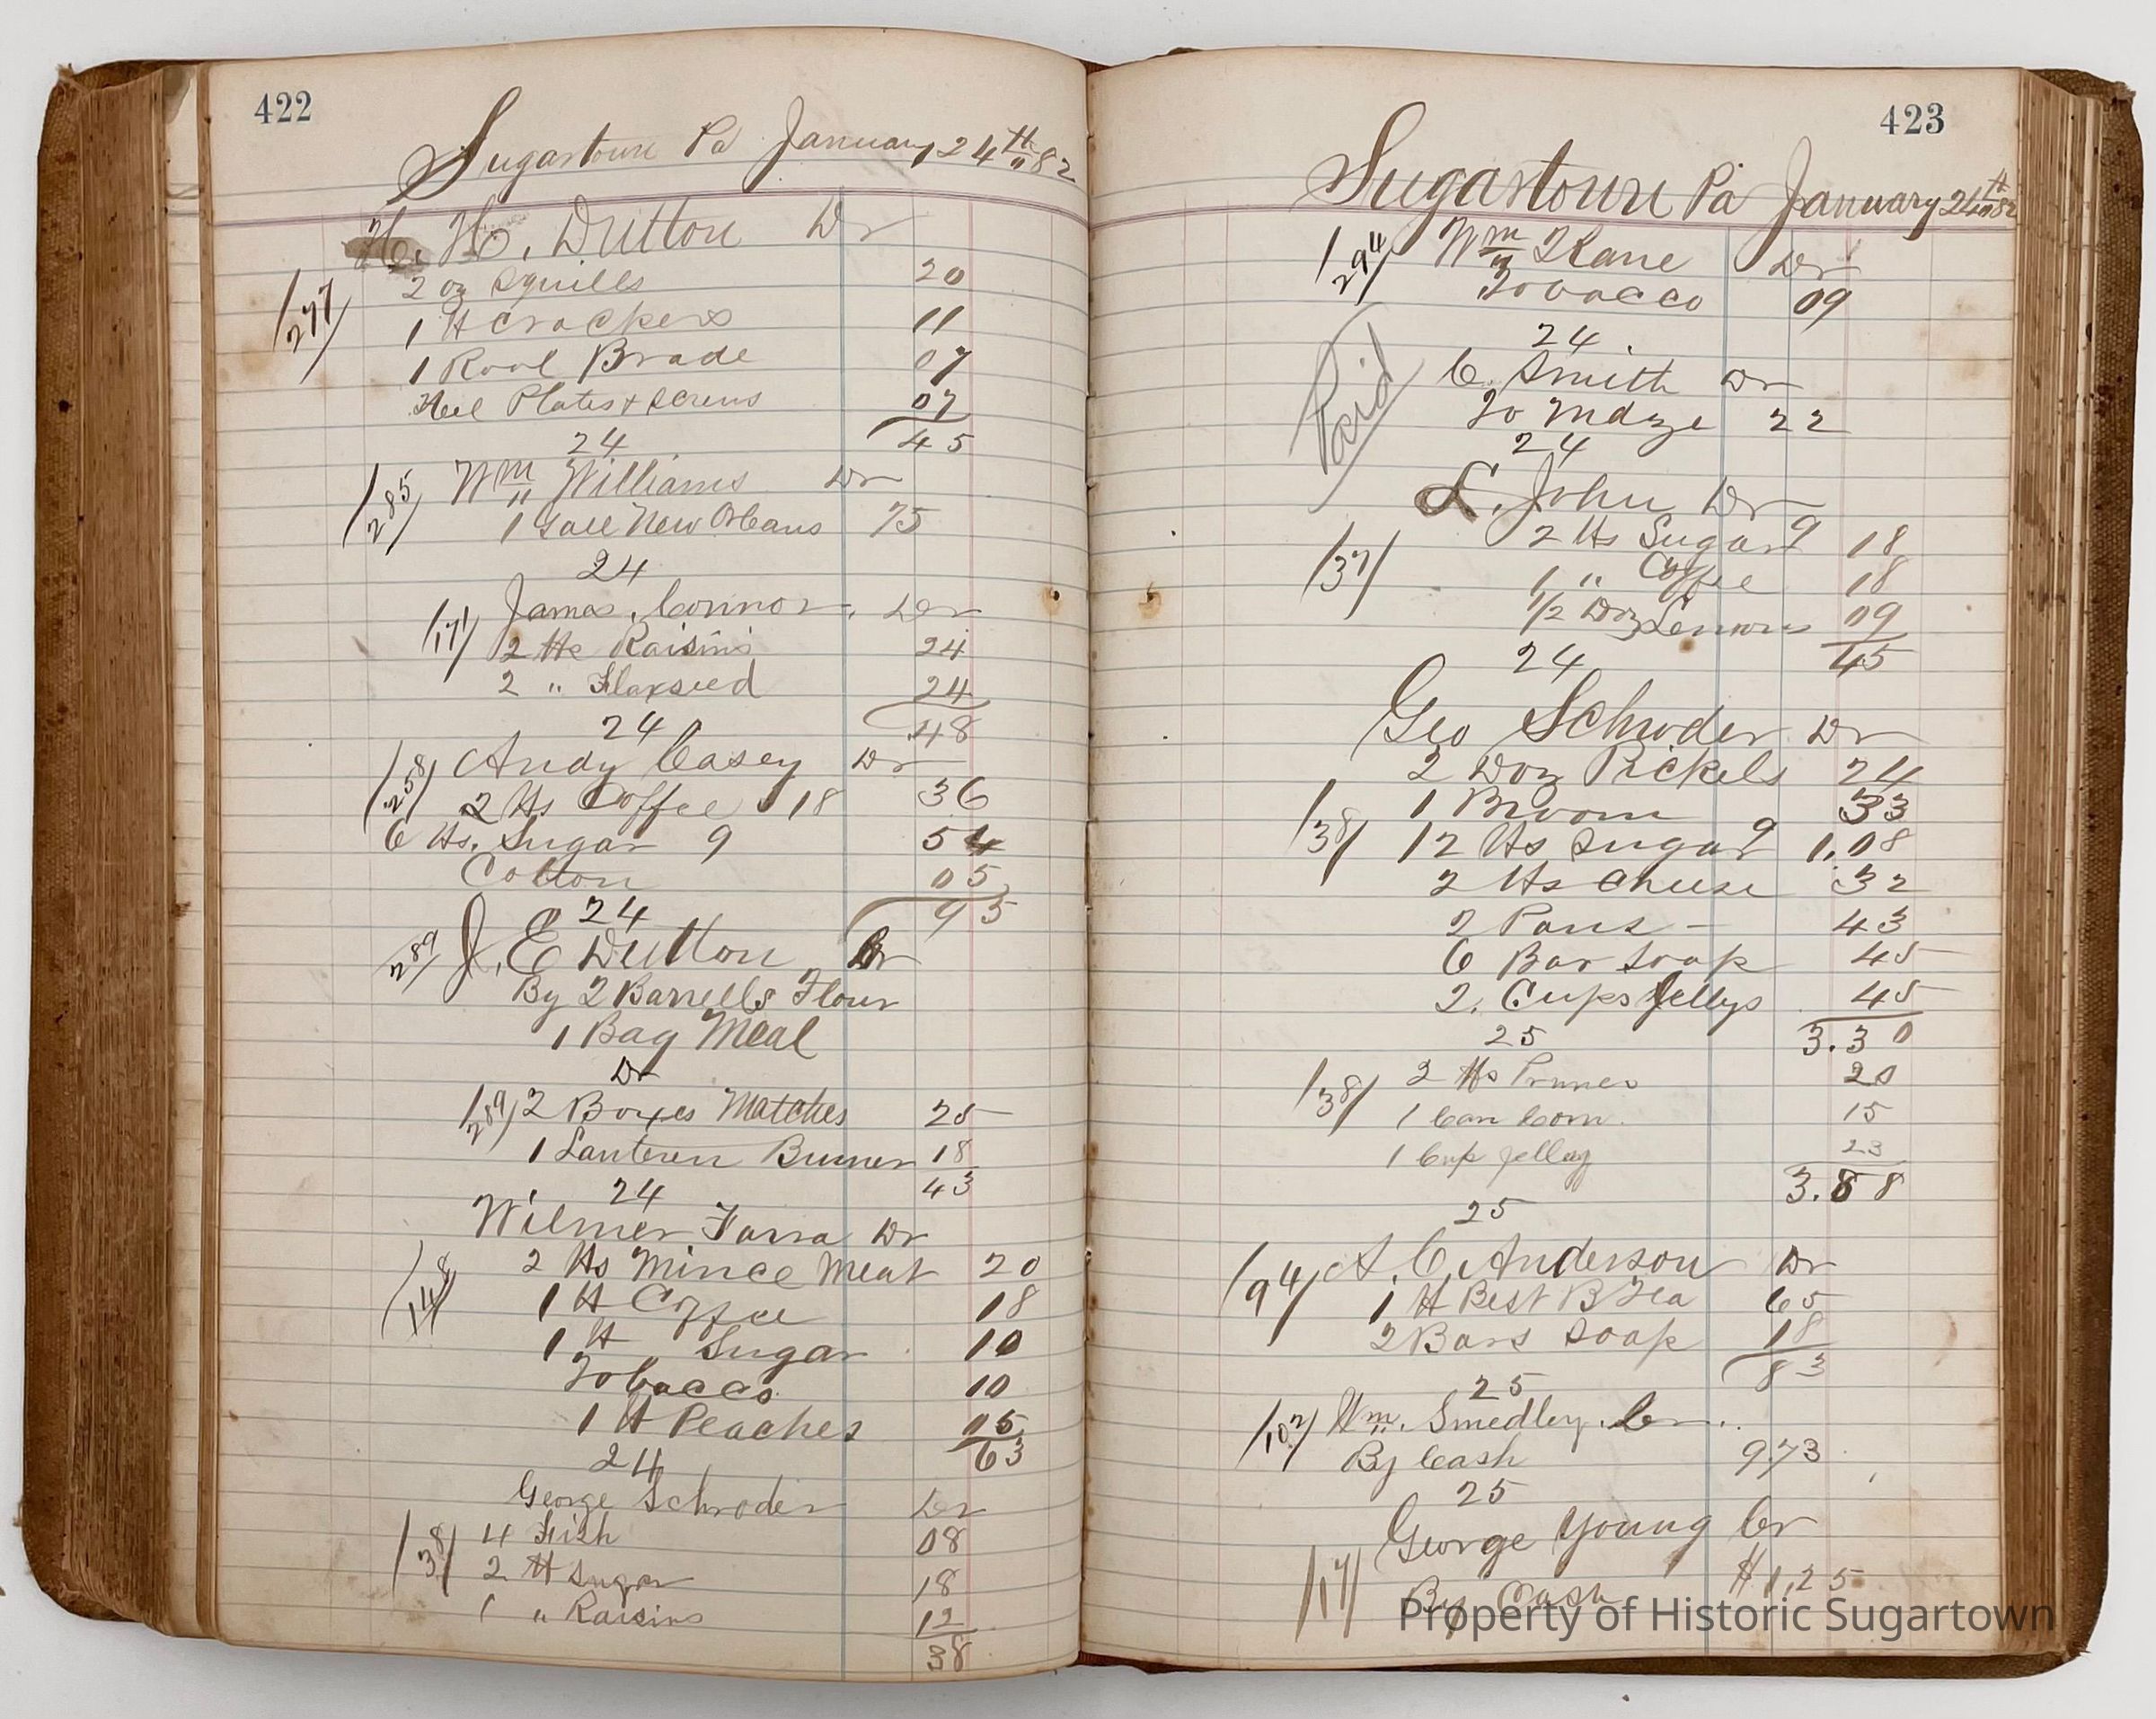 422
Sugartown Pa January 24th "82
H. H. Dutton Dr
277
2 oz Squills 20
1 lb Crackers 11
1 Rool Brade 07
Heel Plates + Screws 07
45
24
285 Wm Williams Dr
1 Gall New Orleans 75
24
James Connor Dr
171 2 lbs Raisins 24
2 " Flaxseed 24
48
24
258 Andy Casey Dr
2 lbs Coffee 18 36
6 lbs. Sugar 9 54
Cotton 05
95
24
289 J. E Dutton
By 2 Barrells Flour
1 Bag Meal
Dr
289 2 Boxes Matches 25
1 Lantern Burner 18
24 43
Wilmer Farra Dr
2 lbs Mince Meat 20
148 1 lb Coffee 18
1 lb Sugar 10
Tobacco 10
1 lb Peaches 05
63
24
George Schroder Dr
38 4 Fish 08
2 lb Sugar 18
1 " Raisins 12
38
423
Sugartown Pa January 24th 82
294 Wm Kane Dr
Tobacco 09
24
Paid
C. Smith Dr
To Mdze 22
24
L. John Dr
37 2 lbs Sugar 9 18
1 " Coffee 18
1/2 Doz Lemons 09
24 45
Geo Schroder Dr
2 Doz Pickels 24
1 Broom 33
38 12 lbs Sugar 9 1.08
2 lbs Cheese 32
2 Pans - 43
6 Bar Soap 45
2. Cups Jellys 45
25 3.30
38 2 lbs Prunes 20
1 Can Corn 15
1 Cup Jelley 23
3.88
25
94 A. C. Anderson Dr
1 lb Best B Tea 65
2 Bars Soap 18
83
25
102 Wm. Smedley. Cr
By Cash 9.73
25
George Young Cr
17 By Cash $1.25
Property of Historic Sugartown